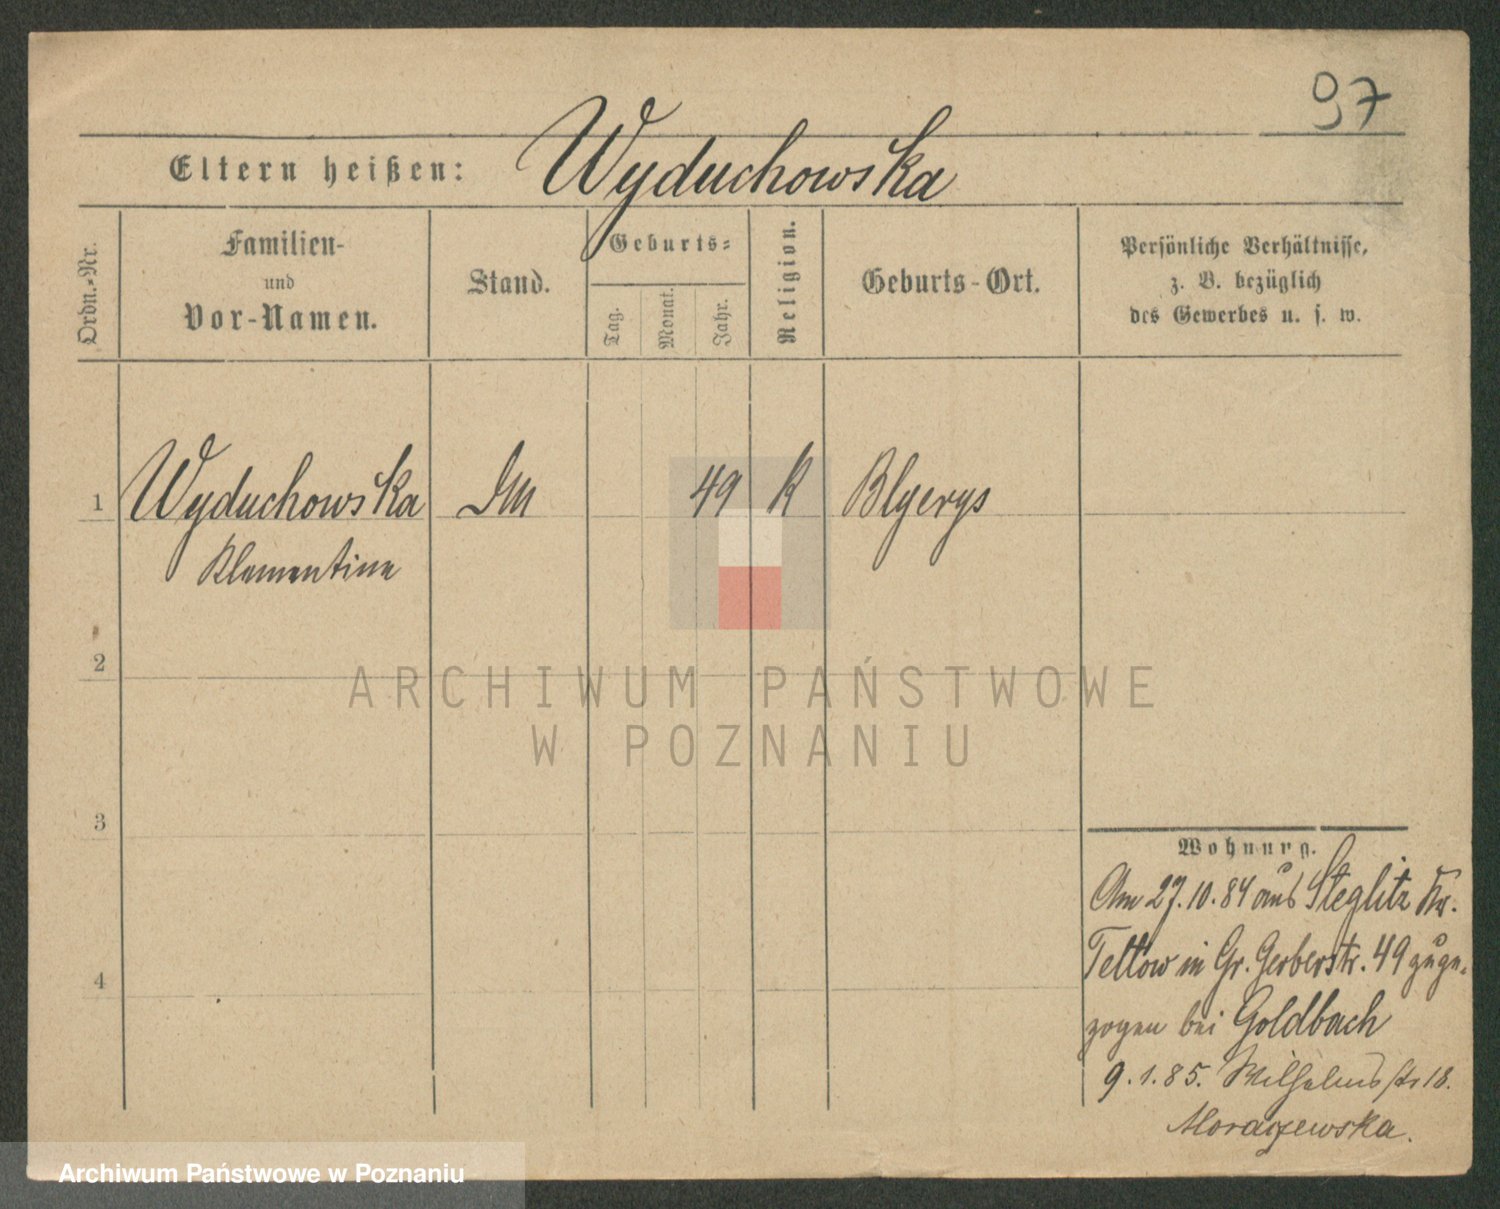 97
Eltern heißen: Wyduchowska
Ordn.-Nr.
Familien-
und
Vor-Namen.
Stand.
Geburts-
Tag.
Monat.
Jahr.
Religion.
Geburts-Ort.
Persönliche Verhältnisse,
z. B. bezüglich
des Gewerbes u. s. w.
1 Wyduchowska 49 K
Klementine
2
ARCHIWUM PAŃSTWOWE
W POZNANIU
3
4
Wohnung.
Am 27.10.84 aus Steglitz Kr.
Teltow in Gr. Gerberstr. 49 zuge-
zogen bei Goldbach
9.1.85. Wilhelmsstr 18.
Archiwum Państwowe w Poznaniu